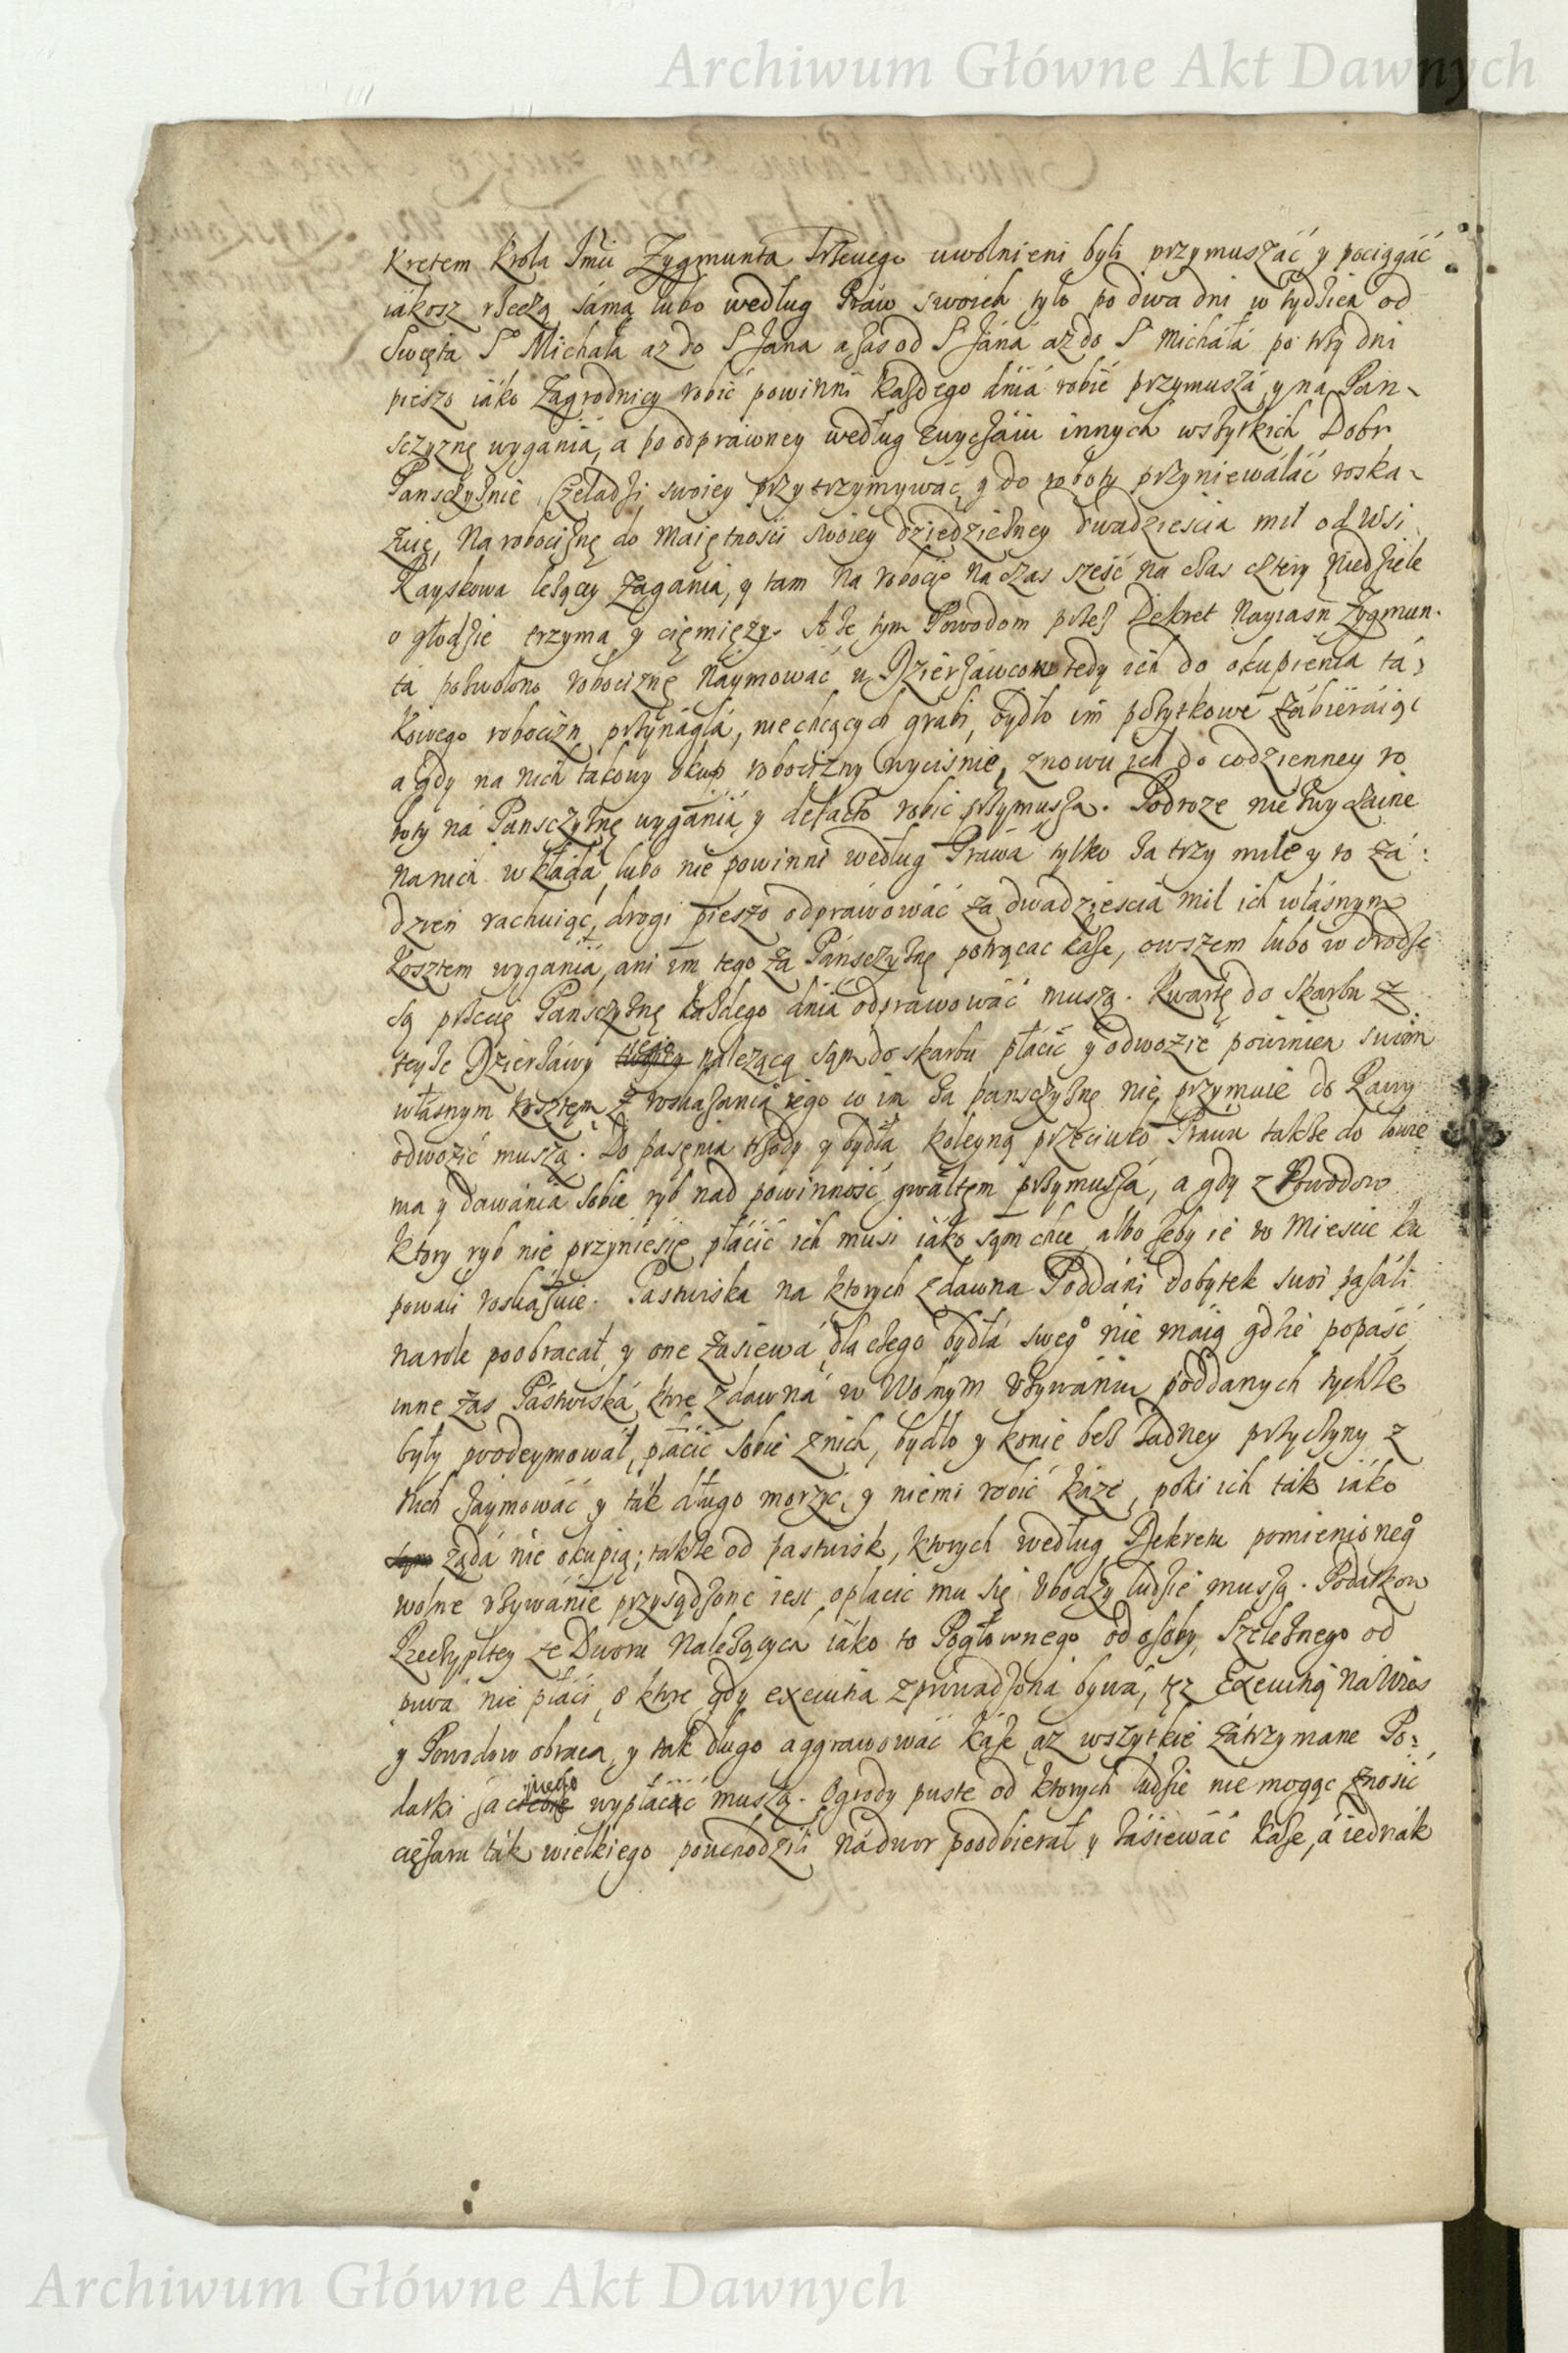 Archiwum Główne Akt Dawnych
kretem Krola Jmći Zygmunta Trzeciego uwolnieni byli przymuszáć y pociągáć
iákosz rzeczą sámą lubo według Praw swoich tylo po dwa dni w tydzien od
Swięta S Michała az do S Jana a zas od S Jáná az do S Micháłá po trzy dni
pieszo iáko Zagrodnicy robić powinni każdego dniá robić przymuszá y na Pan-
sczyznę wygániá, a po odpráwney według zwyczáiu innych wszytkich Dobr
Pansczyznie Czeladzi swoiey przytrzymywáć y do roboty przyniewáláć roska-
zuię, Na robociznę do Maiętnosci swoiey dziedziczney dwadziescia mil od Wsi
Kayskowa leżącey zagania, y tam na robocie na czas sześć na czas cztery Niedziele
o głodzie trzyma y ciemięzy. A ze tym Powodom przez Dekret Nayiasn Zygmun-
ta pozwolono robociznę Naymowáć u Dzierżáwcow tedy ich do okupienia tá-
kowego robocizn przynáglá, nie chcących grabi, bydło im pożytkowe zábieráiąc
a gdy na nich takowy okup robocizny wyciśnie, znowu ich do codzienney ro
boty ná Pansczyznę wygániá y de facto robić przymusza. Podroze nie zwyczáine
na nich wkłáda, lubo nie powinni według Práwá tylko za trzy mile y to zá
dzien rachuiąc, drogi pieszo odpráwowáć za dwadziescia mil ich włásnym
kosztem wygániá, ani im tego zá Pánsczyznę potrącac káże, owszem lubo w drodze
są przecię Pansczyznę każdego dniá odpráwowáć muszą. Kwartę do Skarbu z
teyże Dzierżáwy należącą sąm do skarbu płácić y odwozić powinien swoim
własnym kosztem z roskazania iego co im za pansczyznę nie przymuie do Rawy
odwozić muszą. Do pasęnia trzody y bydła koleyną przeciwko Práwu także do łowie
nia y dawánia sobie ryb nad powinność gwáłtęm przymuszá, a gdy z Powodow
ktory ryb nie przyniesie płácić ich musi iáko sąm chce albo żeby ie w Miescie ku
powali roskázuie. Pastwiska na ktorych zdawna Poddáni dobytek swoi pasáli
na role poobracał y one zásiewá, dla czego bydłá swego nie máią gdzie popáść,
inne zas Pástwiská ktore zdawná w Wolnym vżywániu poddanych tychże
były poodeymowáł, płácić sobie z nich, bydło y konie bez żadney przyczyny z
nich zaymowáć y ták długo morzyć, y niemi robić káże, poki ich ták iáko
żąda nie okupią; także od pastwisk, ktorych według Dekretu pomienionego
wolne vżywánie przysądzone iest opłacic mu się vbodzy ludzie muszą. Podatkow
Rzeczypltey ze Dworu Należących iáko to Pogłownego od osoby, Szelężnego od
piwá nie płáci, o ktore gdy exekucia zprowadzoná bywá, tęz Exekucią ná Wies
y Powodow obraca, y tak długo aggrawowáć káże az wszytkie zátrzymane Po-
datki zá niego wypłacać muszą. Ogrody puste od ktorych ludzie nie mogąc znosić
ciężaru ták wielkiego pouchodzili ná dwor poodbierał y zásiewáć káże, á iednák
Archiwum Główne Akt Dawnych